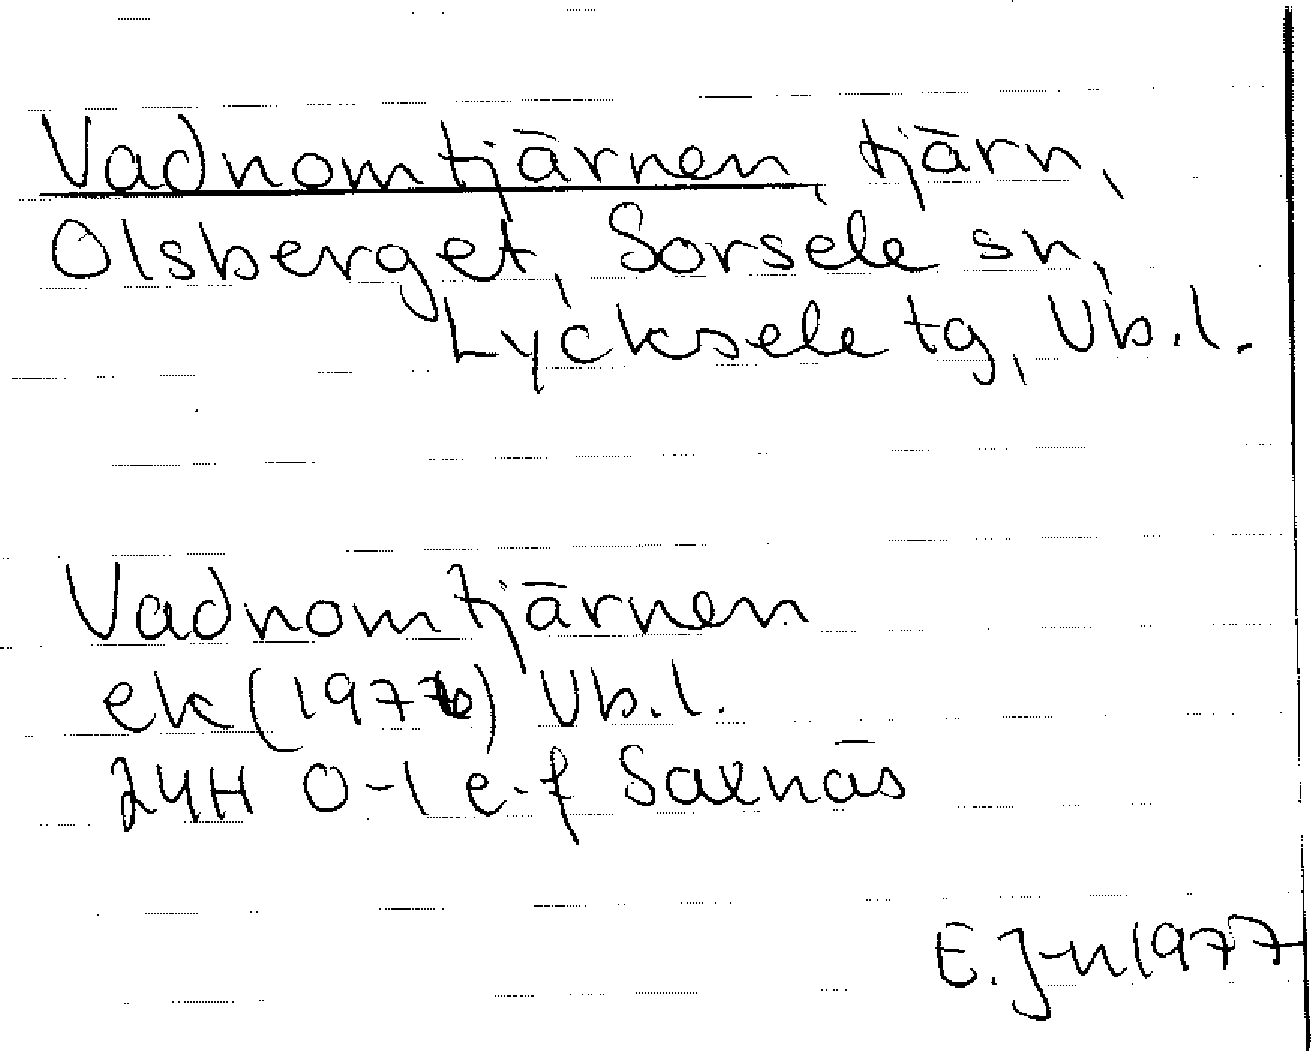 Vadnomtjärnen, tjärn,
Olsberget, Sorsele sn,
Lycksele tg, Vb.l.
Vadnomtjärnen
ek (1976) Vb.l.
24H 0-1 e-f Saxnäs
E.J-n 1977